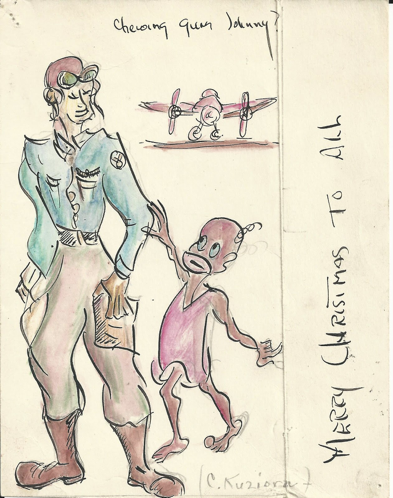 Chewing gum Johnny?
MERRY CHRISTMAS TO ALL
C. Kuziora